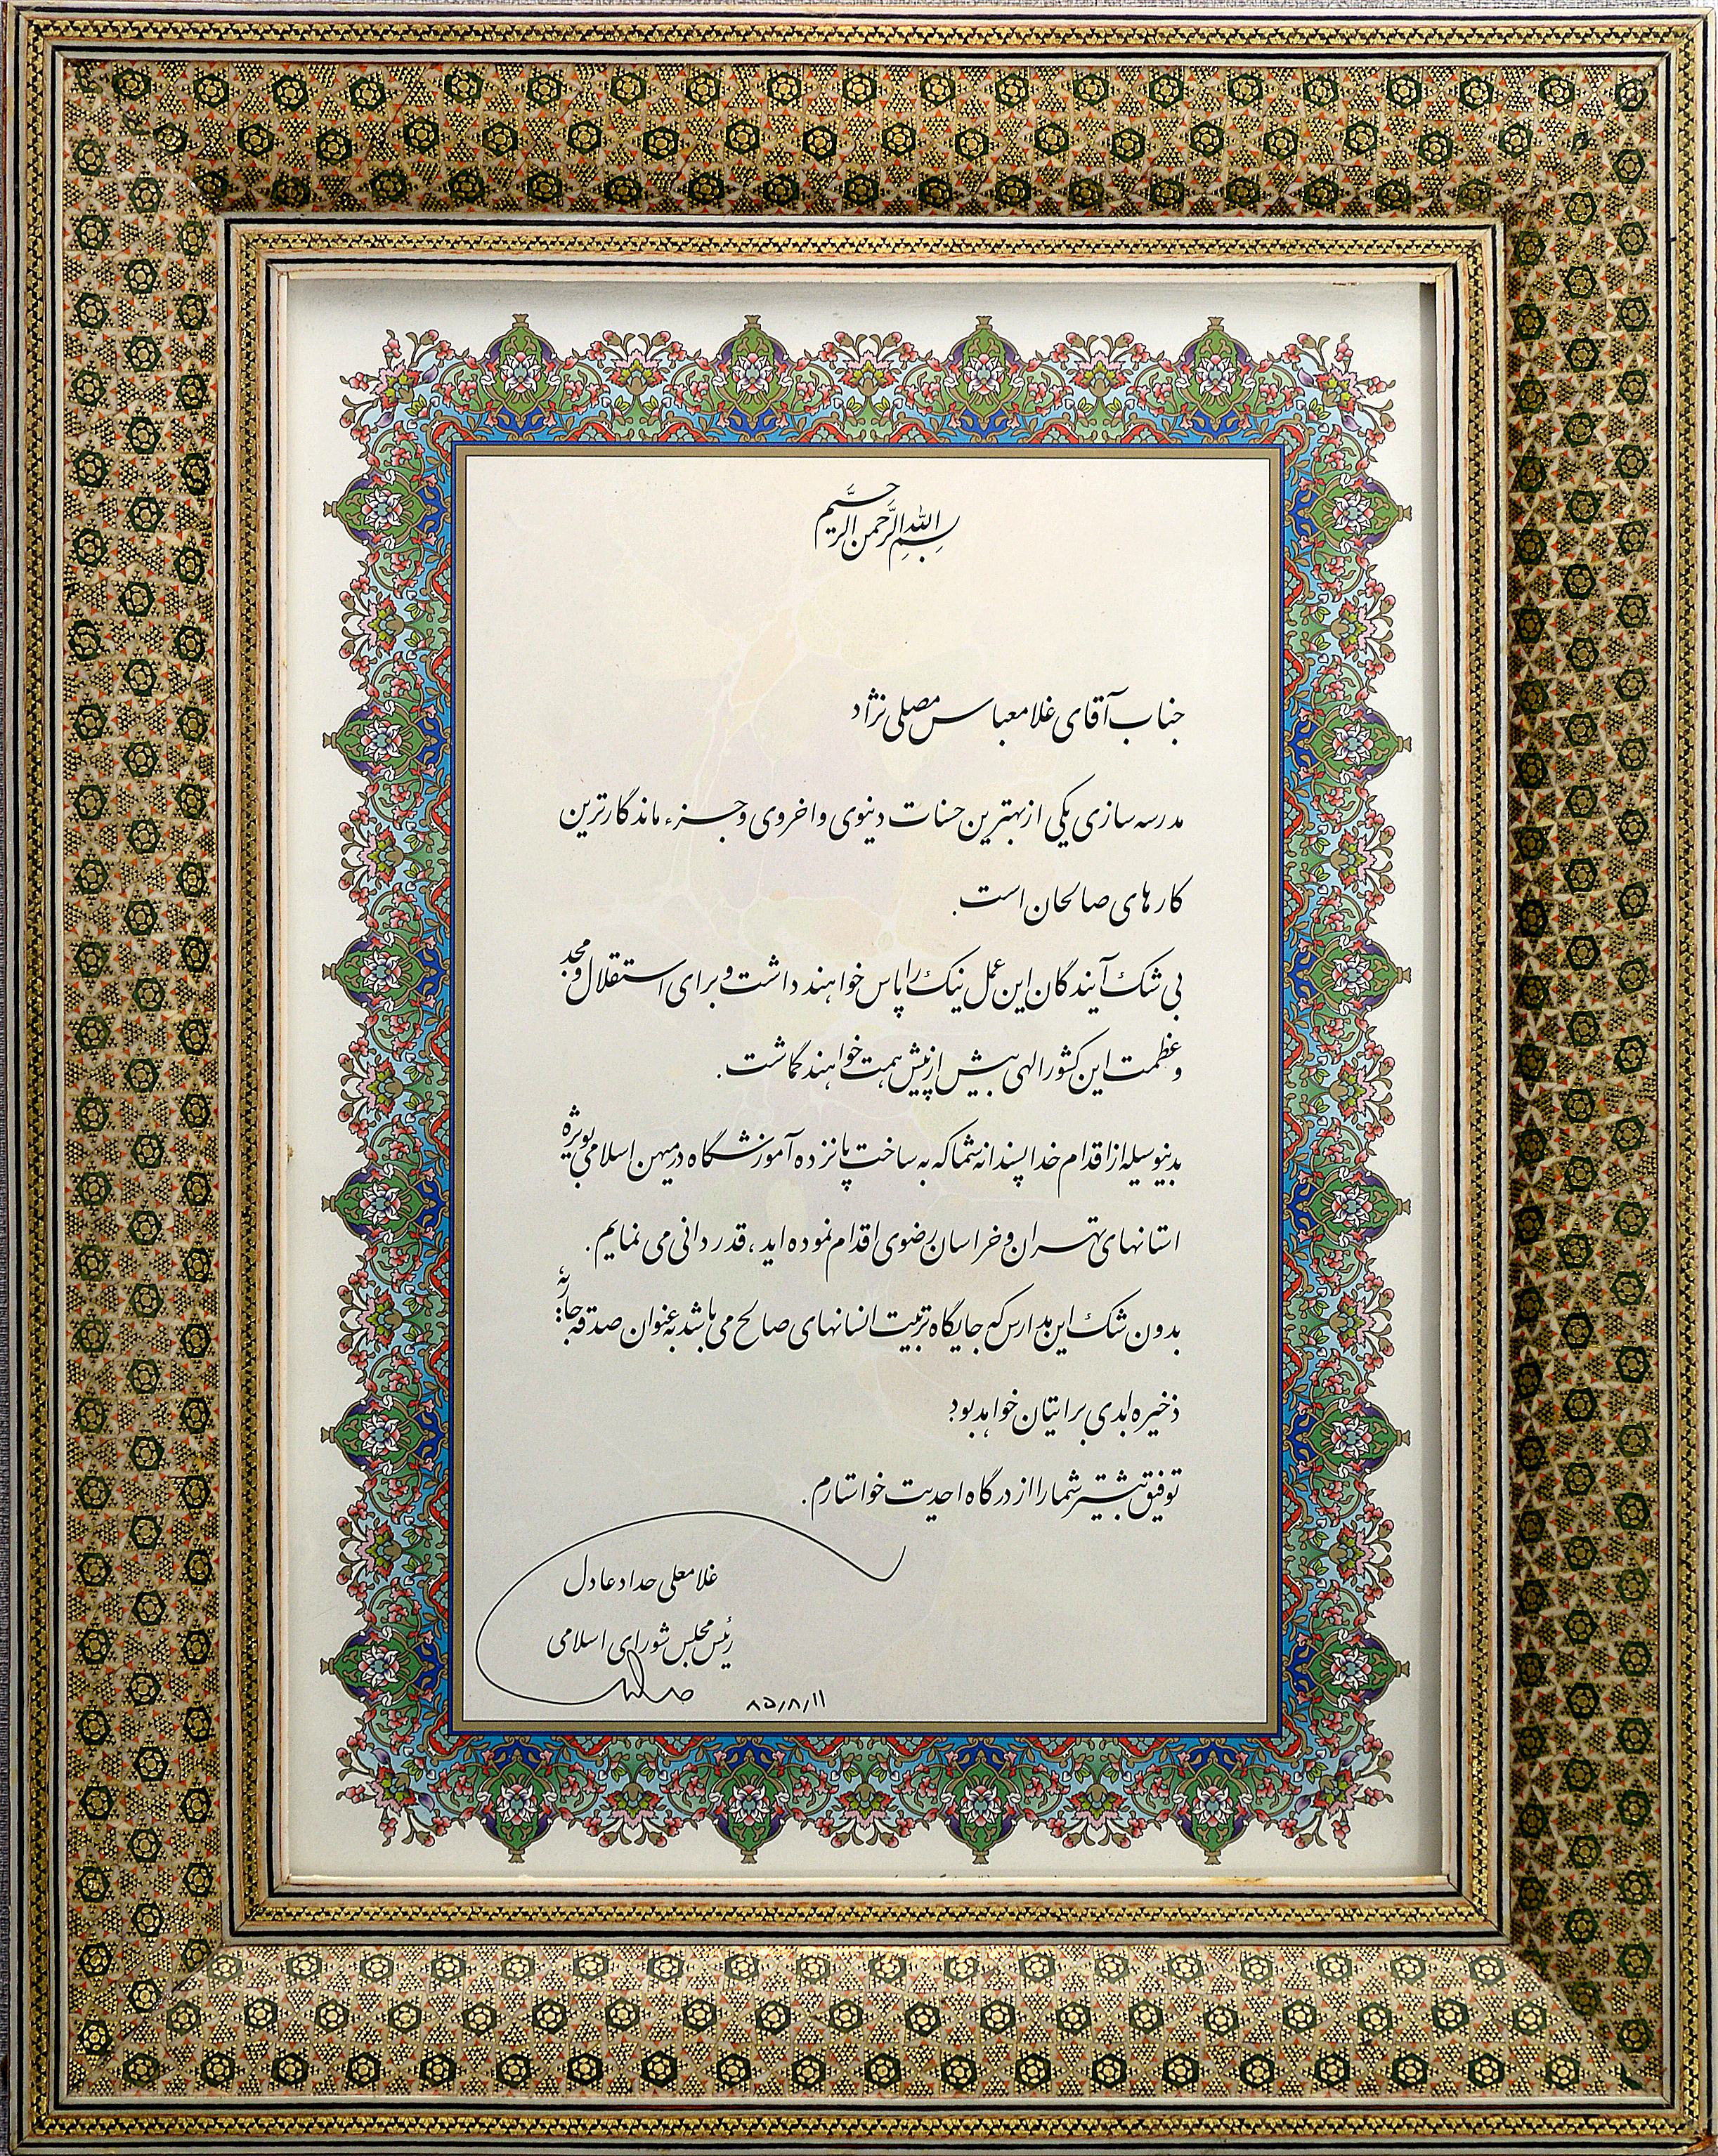 بِسمِ اللهِ الرَّحمنِ الرَّحیم
جناب آقای غلامعباس مصلی نژاد
مدرسه سازی یکی از بهترین حسنات دنیوی و اخروی و جزء ماندگارترین
کارهای صالحان است.
بی شک آیندگان این عمل نیک را پاس خواهند داشت و برای استقلال و مجد
و عظمت این کشور الهی بیش از پیش همت خواهند گماشت.
بدینوسیله از اقدام خداپسندانه شما که به ساخت پانزده آموزشگاه در میهن اسلامی بویژه
استانهای تهران و خراسان رضوی اقدام نموده اید، قدردانی می نمایم.
بدون شک این مدارس که جایگاه تربیت انسانهای صالح می باشد به عنوان صدقه جاریه
ذخیره ابدی برایتان خواهد بود
توفیق بیشتر شما را از درگاه احدیت خواستارم.
غلامعلی حداد عادل
رئیس مجلس شورای اسلامی
۸۵/۸/۱۱